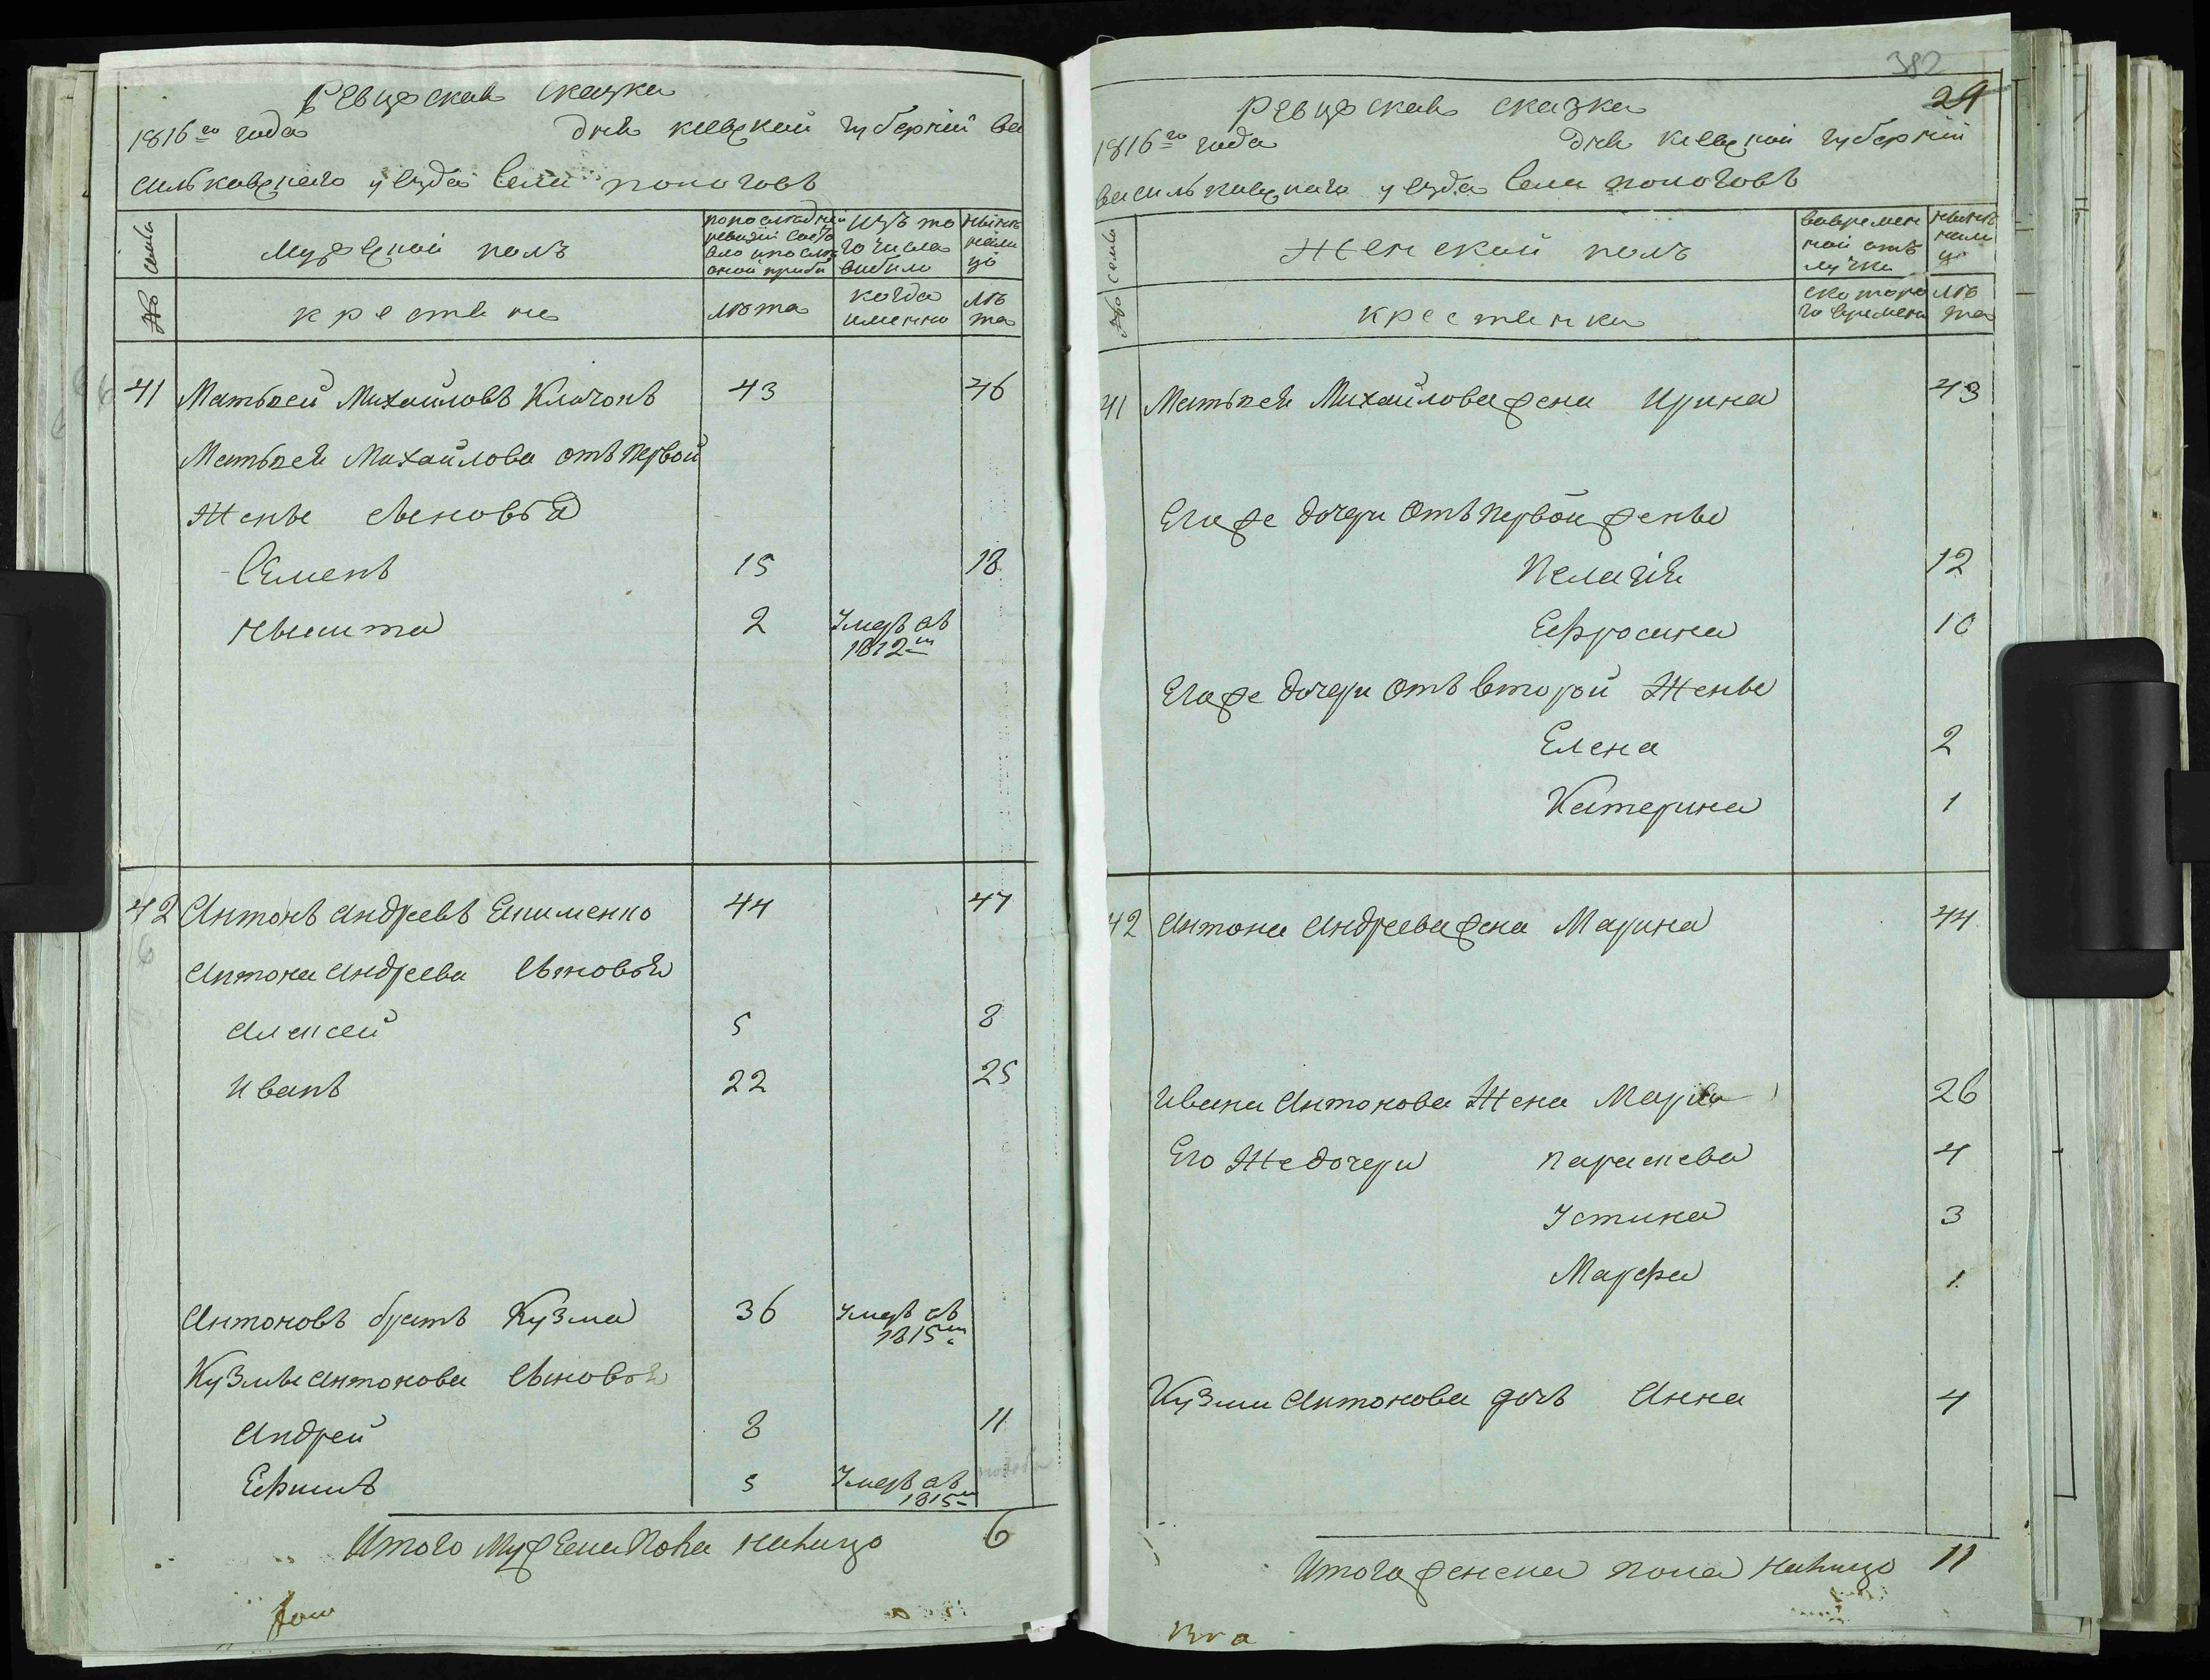 Ревизская сказка
1816го года дня киевской губернии ва
сильковского уезда села пологовъ
№ семьи
Мужеской полъ
по последней ревизии состояло и после оной прибы
изъ того числа выбыло
ныне налицо
крестьяне
лета
когда именно
лета
41 Матвей Михайловъ Клочокъ 43 46
Матвея Михайлова отъ первой
жены сыновья
Семенъ 15 18
Никита 2 Умеръ въ 1812м
42 Антонъ Андреевъ Екименко 44 47
Антона Андреева сыновья
Алексей 5 8
Иванъ 22 25
Антоновъ братъ Кузма 36 Умеръ въ 1815м
Кузмы Антонова сыновья
Андрей 8 11
Ефимъ 5 Умеръ въ 1815м
Итого мужеска пола налицо 6
382
29
Ревизская сказка
1816го года дня киевской губернии
васильковского уезда села пологовъ
№ семьи
Женской полъ
во временной отлучке
ныне налицо
крестьянки
с которого времени
лета
41 Матвея Михайлова жена Ирина 43
Его же дочери отъ первой жены
Пелагия 12
Ефросина 10
Его же дочери отъ второй жены
Елена 2
Катерина 1
42 Антона Андреева жена Марина 44
Ивана Антонова жена Мария 26
Его же дочери Параскева 4
Устина 3
Марфа 1
Кузмы Антонова дочь Анна 4
Итого женска пола налицо 11